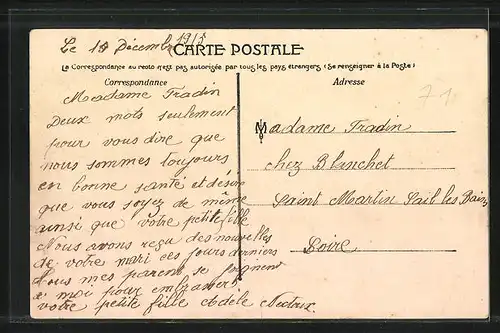 Le 18 Décemb 1915
CARTE POSTALE
La Correspondance au recto n'est pas autorisée par tous les pays étrangers (Se renseigner à la Poste)
Correspondance
Madame Fradin
Deux mots seulement
pour vous dire que
nous sommes toujours
en bonne santé et désire
que vous soyez de même
ainsi que votre petite fille
Nous avons reçu des nouvelles
de votre mari ces jours derniers
Tous mes parents se joignent
à moi pour embrasser
votre petite fille Adèle Nectoux
Adresse
71
Madame Fradin
chez Blanchet
Saint Martin Sail les Bains
Loire